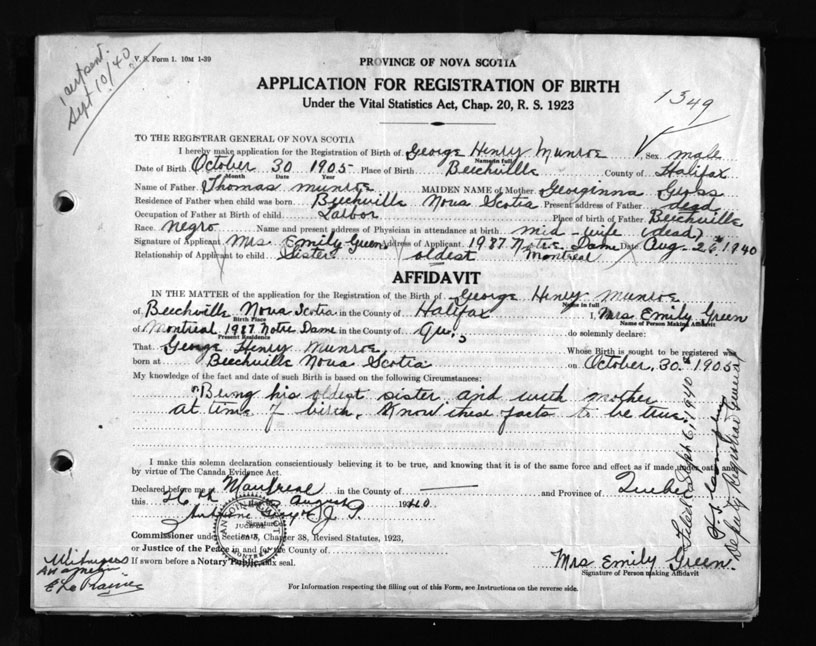 Sept 10/40
V. S. Form 1. 10M 1-39
PROVINCE OF NOVA SCOTIA
APPLICATION FOR REGISTRATION OF BIRTH
Under the Vital Statistics Act, Chap. 20, R. S. 1923
1349
TO THE REGISTRAR GENERAL OF NOVA SCOTIA
I hereby make application for the Registration of Birth of George Henry Munroe, Sex male
Name in full
Date of Birth October 30 1905 Place of Birth Beechville County of Halifax
Month Date Year
Name of Father Thomas Munroe MAIDEN NAME of Mother Georginna
Residence of Father when child was born Beechville Nova Scotia Present address of Father dead
Occupation of Father at Birth of child Labor Place of birth of Father Beechville
Race negro Name and present address of Physician in attendance at birth mid-wife (dead)
Signature of Applicant Mrs Emily Green Address of Applicant 1987 Notre Dame Date Aug - 26th 1940
Relationship of Applicant to child Sister oldest Montreal
AFFIDAVIT
IN THE MATTER of the application for the Registration of the Birth of George Henry Munroe
Name in full
of Beechville Nova Scotia in the County of Halifax I, Mrs Emily Green
Birth Place Name of Person Making Affidavit
of Montreal 1987 Notre Dame in the County of Qu., do solemnly declare:
Present Residence
That George Henry Munroe Whose Birth is sought to be registered was
born at Beechville Nova Scotia on October, 30th 1905
My knowledge of the fact and date of such Birth is based on the following Circumstances:
Being his oldest sister and with mother
at time of birth. Know these facts to be true.
I make this solemn declaration conscientiously believing it to be true, and knowing that it is of the same force and effect as if made under oath and
by virtue of The Canada Evidence Act.
Declared before me at Montreal in the County of — and Province of Quebec
this 26th day of August 1940
J. P.
Signature
Commissioner under Section 5, Chapter 38, Revised Statutes, 1923,
or Justice of the Peace in and for the County of
If sworn before a Notary Public, affix seal.
Witnesses
Mrs Emily Green.
Signature of Person making Affidavit
For Information respecting the filling out of this Form, see Instructions on the reverse side.
Filed Sept 6, 1940
Deputy Registrar General